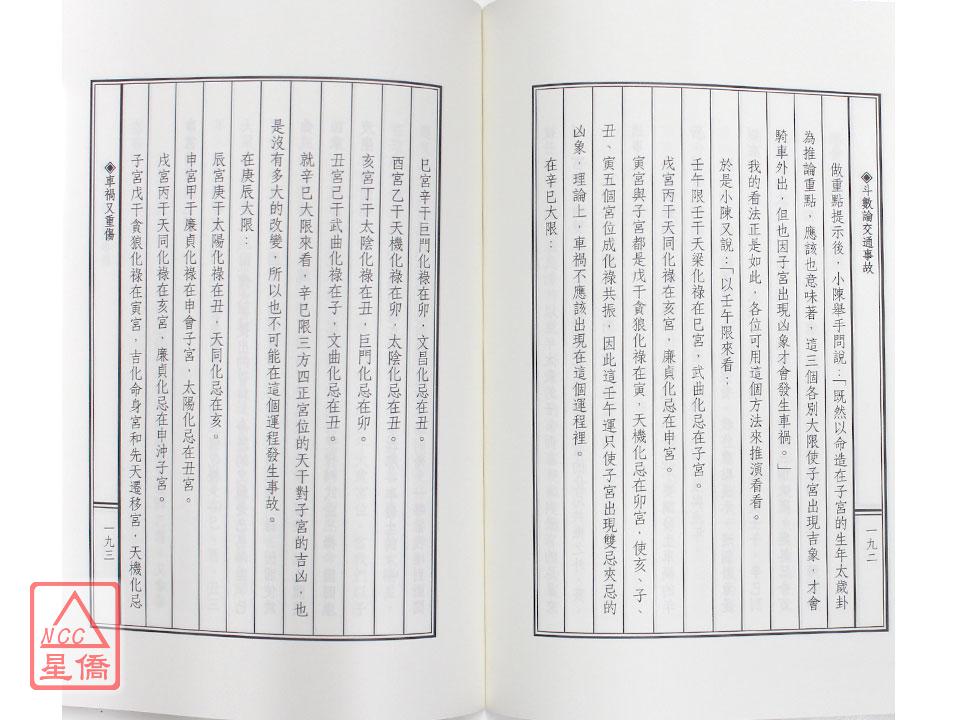 ◈斗數論交通事故
一九二
做重點提示後，小陳舉手問說：「既然以命造在子宮的生年太歲卦
為推論重點，應該也意味著，這三個各別大限使子宮出現吉象，才會
騎車外出，但也因子宮出現凶象才會發生車禍。」
我的看法正是如此，各位可用這個方法來推演看看。
於是小陳又說：「以壬午限來看：
壬午限壬干天梁化祿在巳宮，武曲化忌在子宮。
戌宮丙干天同化祿在亥宮，廉貞化忌在申宮。
寅宮與子宮都是戊干貪狼化祿在寅，天機化忌在卯宮，使亥、子、
丑、寅五個宮位成化祿共振，因此這壬午運只使子宮出現雙忌夾忌的
凶象，理論上，車禍不應該出現在這個運程裡。
在辛巳大限：
巳宮辛干巨門化祿在卯，文昌化忌在丑。
酉宮乙干天機化祿在卯，太陰化忌在丑。
亥宮丁干太陰化祿在丑，巨門化忌在卯。
丑宮己干武曲化祿在子，文曲化忌在丑。
就辛巳大限來看，辛巳限三方四正宮位的天干對子宮的吉凶，也
是沒有多大的改變，所以也不可能在這個運程發生事故。
在庚辰大限：
辰宮庚干太陽化祿在丑，天同化忌在亥。
申宮甲干廉貞化祿在申會子宮，太陽化忌在丑宮。
戌宮丙干天同化祿在亥宮，廉貞化忌在申沖子宮。
子宮戊干貪狼化祿在寅宮，吉化命身宮和先天遷移宮，天機化忌
◈車禍又重傷
一九三
NCC
星僑